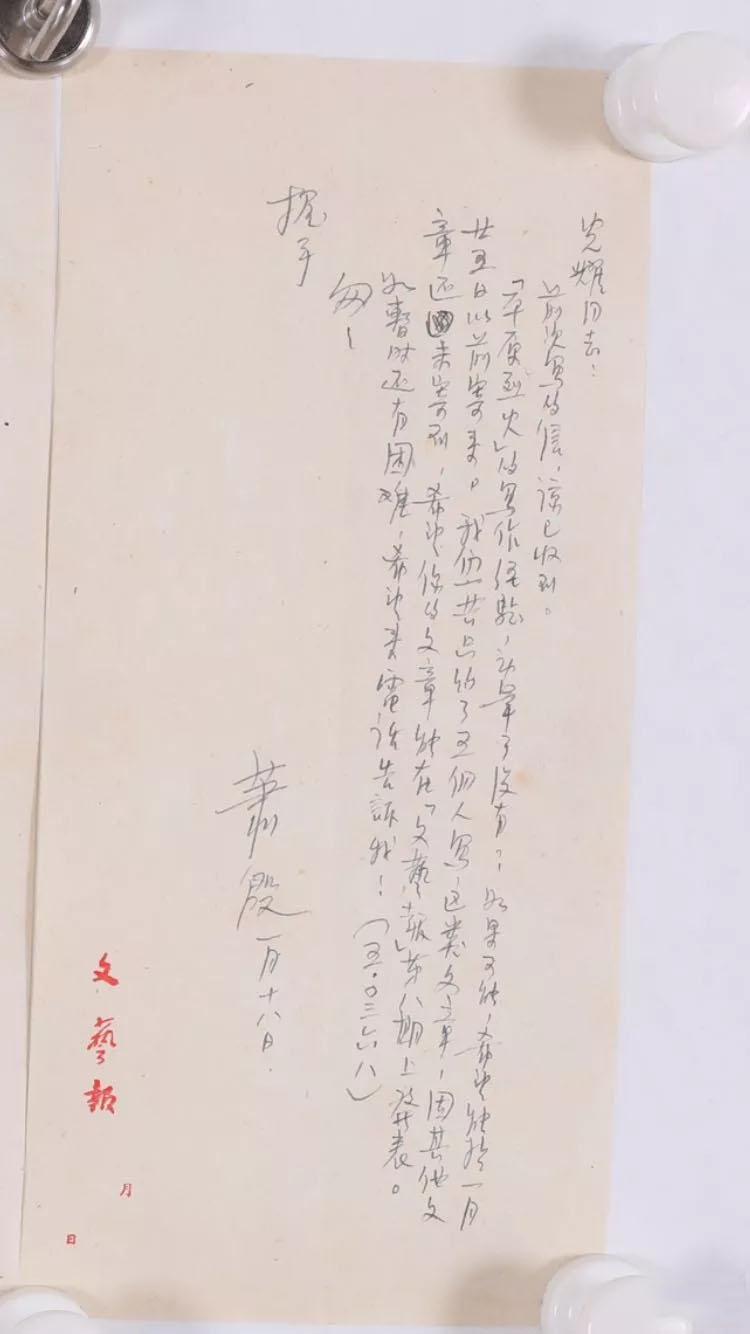 光耀同志：
前次寫的信，諒已收到。
「平原烈火」的寫作經驗，动筆了沒有？如果可能，希望能於一月
廿五日以前寄来。我们一共只約了五個人寫这类文章，因其他文
章还未寄到，希望你的文章能在「文藝報」第八期上发表。
如暫时还有困难，希望来電话告訴我！（五·〇三六八）
匆匆
握手
蕭殷 一月十八日.
文藝報
月
日